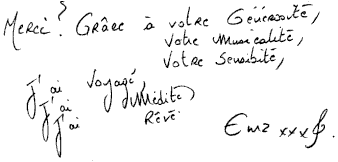 Merci? Grâce à votre Générosité,
Votre Musicalité,
Votre Sensibité,
J'ai Voyagé,
J'ai Médité
J'ai Rêvé
Emz xxx